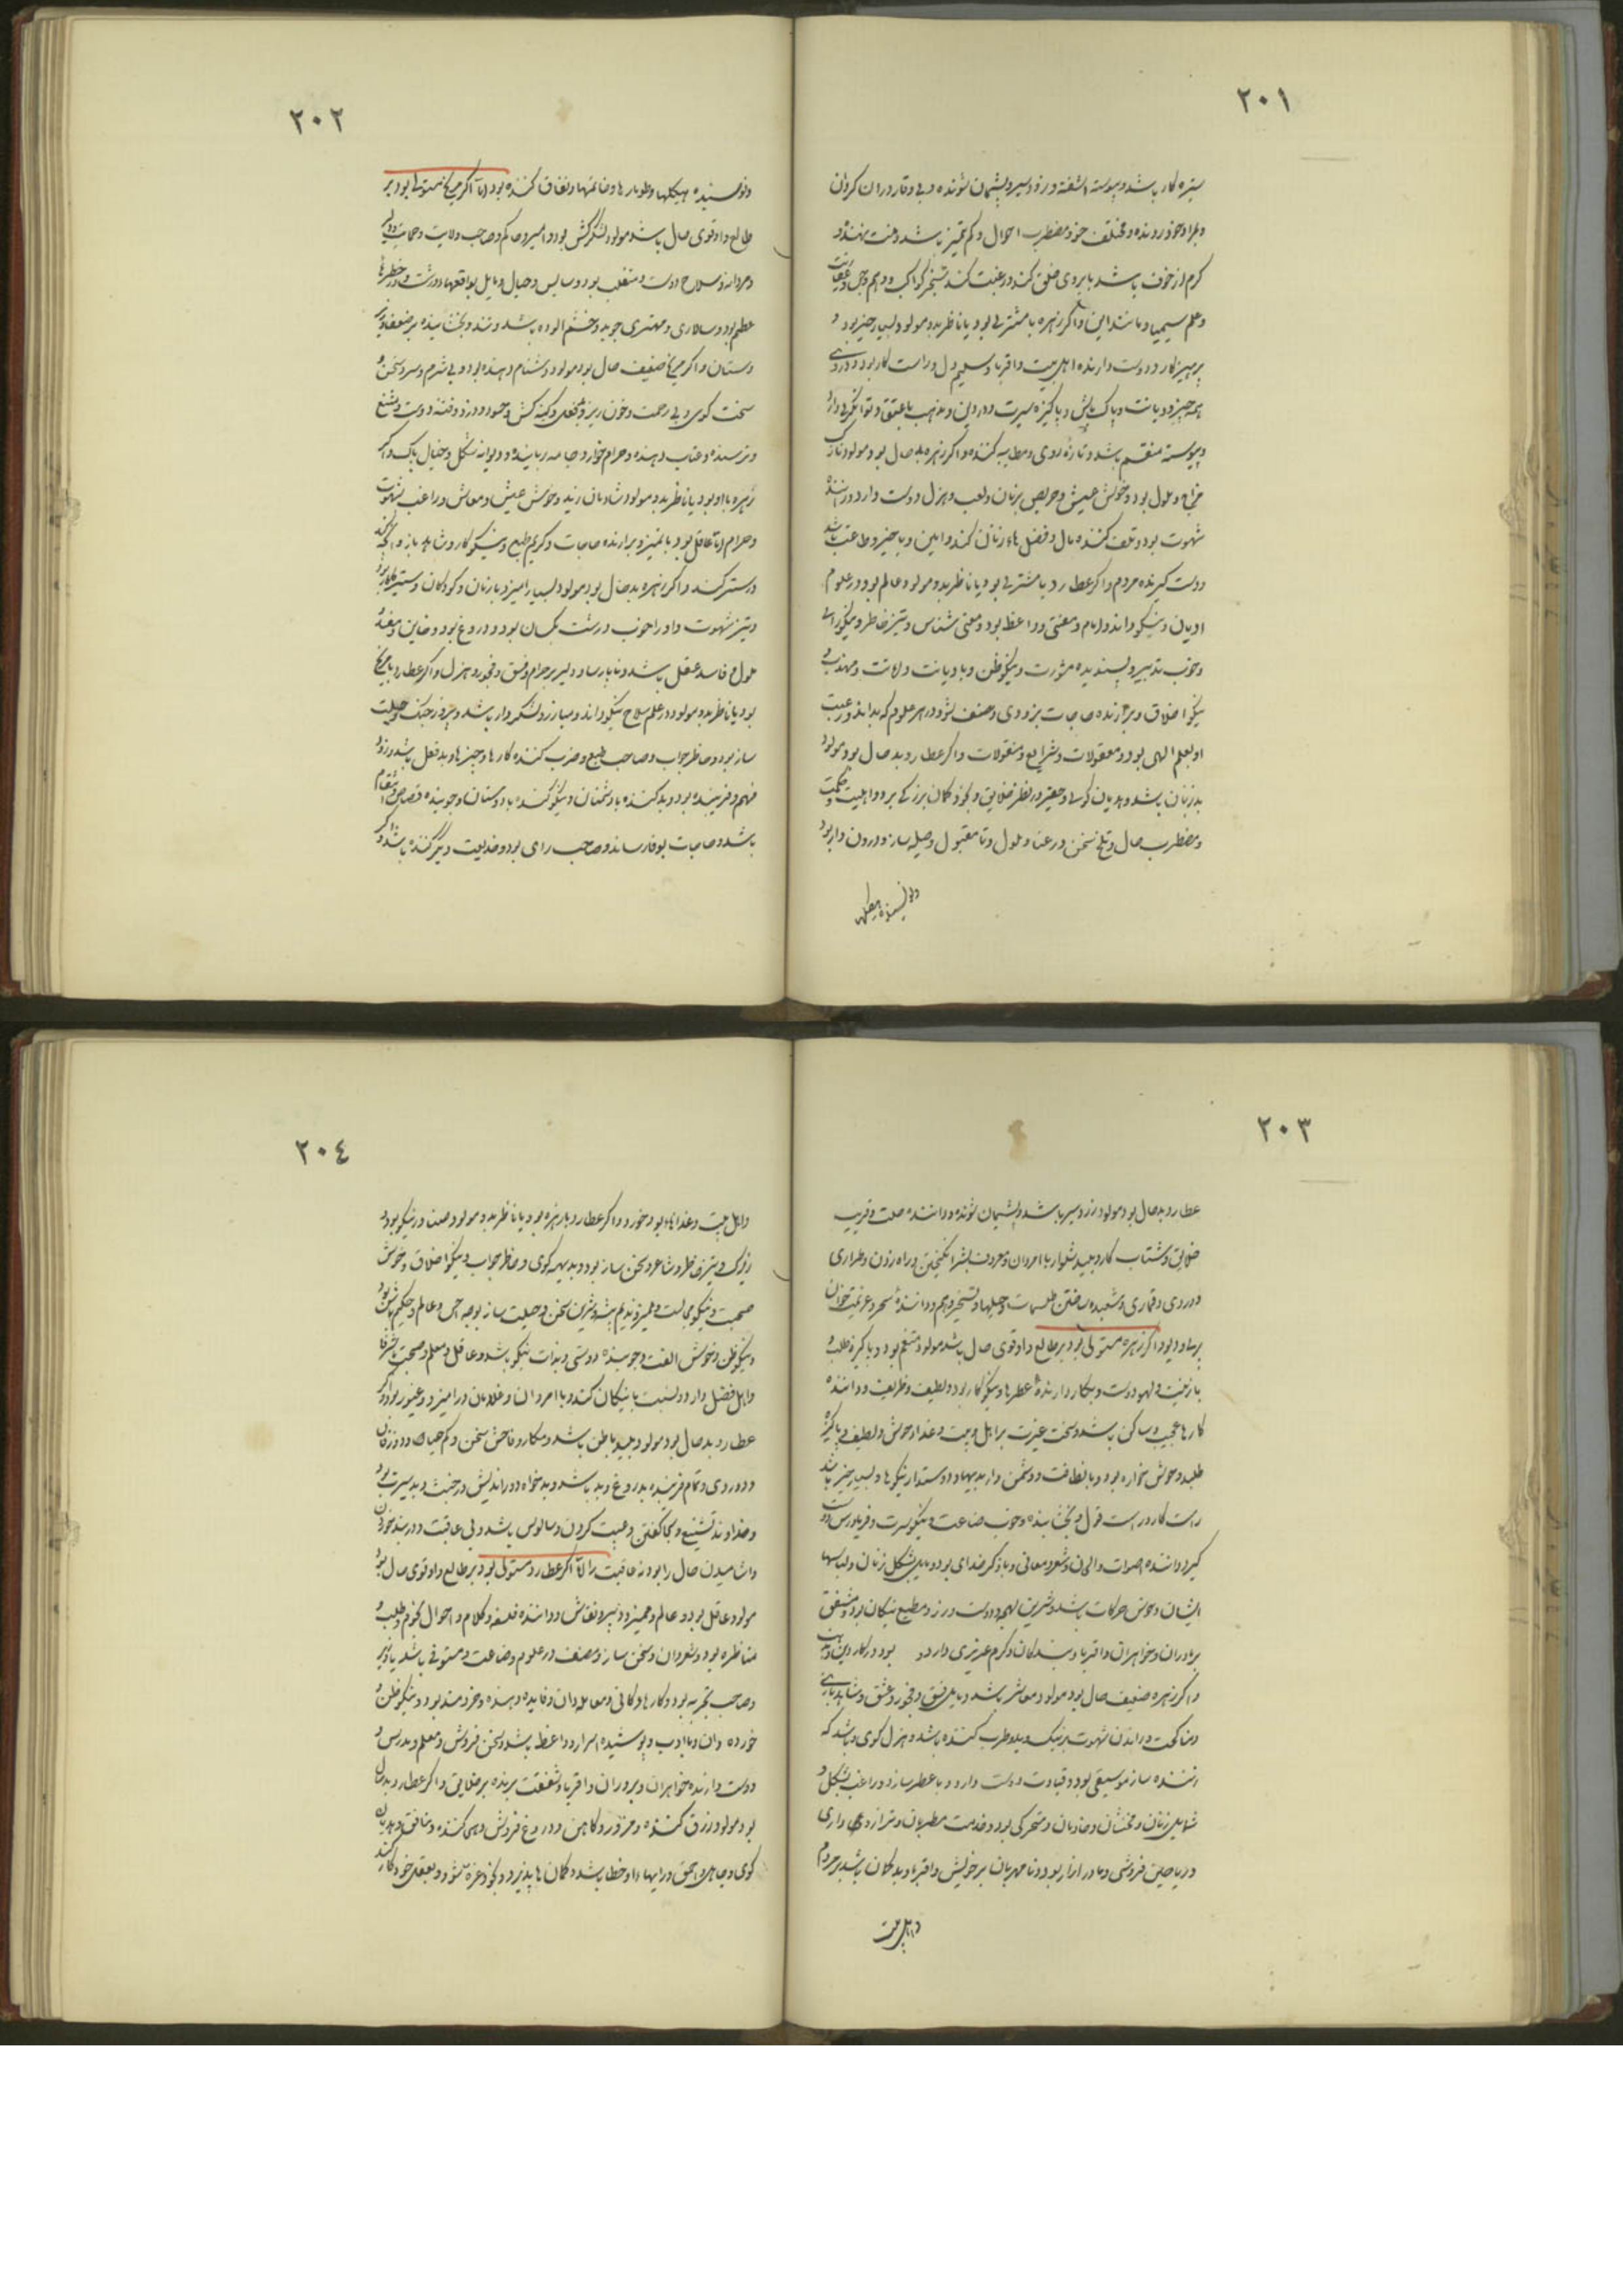 ٢٠١
ستیزه کار باشد و پیوسته آشفته و زود سیر و پشیمان شونده و بی وقار و ران کردان
و مختلف خو و مضطرب احوال و کم تمیز باشد و منت نهنده و
کرم از خوف باشد یا بروی خلق کند و رغبت کند بتسخیر کواکب و وهم و جن و عزیمت
و علم سیمیا و مانند این و اگر زهره با مشتری بود یا ناظر بدو مولود بسیار چیز بود و
پرهیزکار و دوست دارنده اهل بیت و اقربا و سلیم دل و راست کار بود و در
همه چیز و دیانت و پاک و پاکیزه سیرت و در دین و مذهب با عتیق و توانگری دارد
و پیوسته متنعم باشد و تازه روی و مطایبه کننده و اگر زهره بد حال بود مولود نازک
مزاج و ملول بود و خوش عیش و حریص بزنان و لعب و هزل دوست دارد و راننده
شهوت بود و تلف کننده مال و فضل هاء زنان کند و امین و با خیر و طاعت باشد
دوست گیرنده مردم و اگر عطارد با مشتری بود یا ناظر بدو مولود عالم بود در علوم
ادیان و نیکو داند و امام و مفتی و واعظ بود و معنی شناس و تیز خاطر و نیکو رای
و خوب تدبیر و پسندیده مشورت و نیکو ظن و با دیانت و امانت و مهذب و
نیکو اخلاق و برآرنده حاجات بزودی و مصنف شود در هر علوم که بداند و رغبت
او بعلم الهی بود و معقولات و شرایع و منقولات و اگر عطارد بد حال بود مولود
بد زبان باشد و هذیان گوی و حقیر در نظر خلایق و بخود گمان بزرگی برد و اهلیت و حکمت
و مضطرب حال و تلخ سخن و رعنا و ملول و نا مقبول و حیله ساز و درون دار بود
و نویسنده هیکلها
٢٠٢
و نویسنده هیکلها و طومارها و خاتمها و نفاق کننده بود اما اگر مریخ مستولی بود بر
طالع و او قوی حال باشد مولود لشکر کش بود و امیر و حاکم و صاحب ولایت و حمایت و دلیر
و مردانه و سلاح دوست و متغلب بود و سایس و حیال و مایل بواقعها و درشت و در خطرها
عظیم بود و سالاری و مهتری جوید و خشم آلوده باشد و تند و بخشاینده بر ضعفا و زیر
دستان و اگر مریخ ضعیف حال بود مولود دشنام دهنده بود و بی شرم و سرد سخن و
سخت گوی و بی رحمت و خون ریز و بدفعل و کینه کش و حسود و دزد و فتنه دوست و متشنع
و ترسنده و عتاب دهنده و حرام خوار و جامه رباینده و دیوانه شکل و بخیال باک و اگر
زهره با او بود یا ناظر بدو مولود شادمان زید و خوش عیش و معاش و راغب بشهوت
و حرام اما عاقل بود با تمیز و برآرنده حاجات و کریم طبع و نیکو کار و شاهد باز و آنچه کند
در ستر کند و اگر زهره بد حال بود مولود بسیار آمیزد با زنان و کودکان و ستیزه کار بود
و تیز شهوت و او را خوب و زشت یکسان بود و دروغ بود و خاین و مفسد
ملول و فاسد عقل باشد و ناپارسا و دلیر بر حرام و فسق و فجور و هزل و اگر عطارد با مریخ
بود یا ناظر بدو مولود در علم سلاح نیکو داند و مبارز و لشکر دار باشد و پیروز جنگ و حیلت
ساز بود و حاضر جواب و صاحب طبع و ضرب کننده کارها و چیزها و بد فعل باشد و زود
فهم و فریبنده بود و بد کننده با دشمنان و نیکو کننده با دوستان و جوینده قصاص و انتقام
باشد و حاجات بوفا رساند و صاحب رای بود و خدایعت دیگر کننده باشد و اگر
٢٠٣
عطارد بد حال بود مولود زود سیر باشد و پشیمان شونده و داننده صلت و فریب
خلایق و شتاب کار و پلید شلوار با امردان و معروف بشر انگیختن و راه زدن و طراری
و دزدی و قماری و شعبده و ساختن طلسمات و حیلها و تسخیر و وهم و داننده سحر و عزیمت خوان
بود اگر زهره مستولی بود بر طالع و او قوی حال باشد مولود متنعم بود و پاکیزه طلب و
با زینت و لهو دوست و بکار دارنده عطرها و نیکو کار بود و لطیف و ظریف و داننده
کارها عجیب و ساکن باشد و سخت غیرت بر اهل و بیت و غذا خوش و لطیف و پاکیزه
طلبد و خوش خواره بود و با نظافت و دشمن دار بدیها و دوستدار نیکوها و بسیار خیز باشد
راست کار و راست قول و بخشاینده و خوب صناعت و نیکو سیرت و فریادرس و دوست
گیر و داننده اصوات و الحان و شعر و معانی و با ذکر خدای بود و مایل بشکل زنان و لباسها
ایشان و خوش حرکات باشد و شیرین لهجه و دوست ورز و مطیع نیکان بود و مشفق
برادران و خواهران و اقربا و بندگان و کرم عزیزی دارد و بود در کار دین و
و اگر زهره ضعیف حال بود مولود معاشر باشد و مایل فسق و فجور و عشق و شاهد بازی
و مناکحت و راندن شهوت بر نیک و بد و طرب کننده باشد و هزل گوی و باشد که
زننده ساز موسیقی بود و قیادت دوست دارد و با عطر سازد و راغب بشکل و
شمایل زنان و مخنثان و خادمان و متحرکی بود و خدمت مطربان و ترازو داری
و ریاحین فروشی و مادر آزار بود و نا مهربان بر خویش و اقربا و بد گمان باشد بر مردم
و اهل بیت
٢٠٤
و اهل بیت و غذاهاء بود خورد و اگر عطارد با زهره بود یا ناظر بدو مولود مصنف و نیکو بود
زیرک و تیز خاطر و شاعر و سخن ساز بود و بدیهه گوی و حاضر جواب و نیکو اخلاق و خوش
صحبت و نیکو مجالست و ممیز و ندیم پیشه و شیرین سخن و حیلت ساز بوجه احسن و عالم و حکیم بود
و نیکو ظن و خوش الفت و جوینده دوستی و بذات نیکو باشد و عاقل و معلم و صحبت با شرفا
و اهل فضل دارد و نسبت با نیکان کند و با امردان و غلامان درآمیزد و غیور بود و اگر
عطارد بد حال بود مولود پلید باطن باشد و مکار و فاحش سخن و کم حیا و دو زبان
و دو روی و تمام فریبنده بدروغ و بد باشد و بدخواه و دور اندیش در خبث و بد سیرت بود
و خداوند تشنیع و بجا گفتن و عیبت کردن و سالوس باشد و بی عاقبت و در بند خوردن
و آشامیدن حال را بود نه عاقبت را اما اگر عطارد مستولی بود بر طالع و او قوی حال بود
مولود عاقل بود و عالم و ممیز و دبیر و نقاش و داننده فلسفه و کلام و احوال نجوم و طلب و
مناظره بود و شعردان و سخن ساز و مصنف در علوم و صناعت و مستوفی باشد یا وزیر
و صاحب تجربه بود و کارها و کافی و معامله دان و فایده دهنده و خردمند بود و نیکو ظن و
خورده دان و با ادب و پوشیده اسرار و واعظ باشد و سخن فروش و معلم و مدرس و
دوست دارنده خواهران و برادران و اقربا و شفقت برنده بر خلایق و اگر عطارد بد حال
بود مولود زرق کننده و مزور و کاهن و دروغ فروش و سعی کننده و منافق و هذیان
گوی و جاهل و احمق و رایهاء او خطا باشد و گمان ها پذیرد و بخود غره شود و بعقل خود کار کند